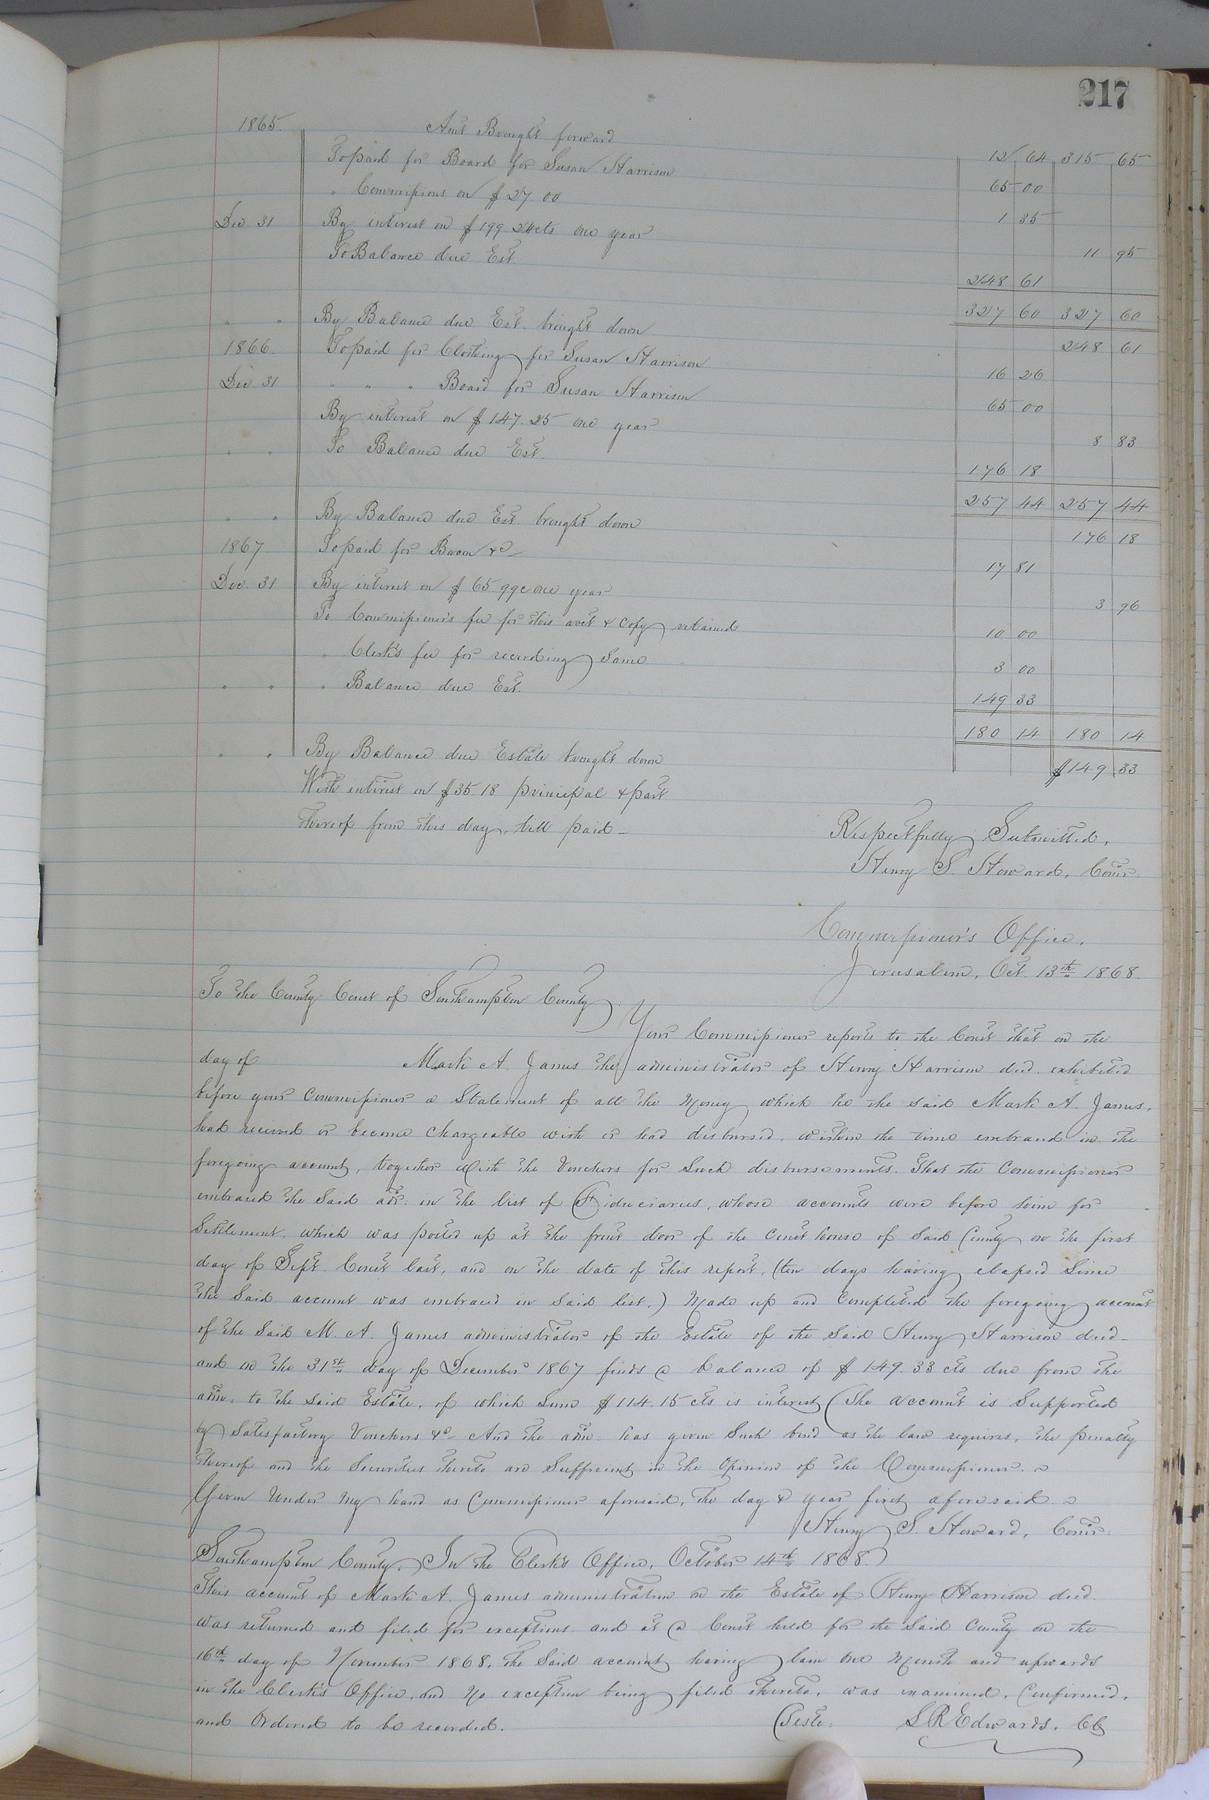 217
1865. Amt Brought forward 12 64 315 65
To paid for Board for Susan Harrison 65 00
" Commissions on $27 00 1 35
Dec 31 By interest on $199 24cts one year 11 95
To Balance due Est 248 61
327 60 327 60
" " By Balance due Est. brought down 248 61
1866. To paid for Clothing for Susan Harrison 16 26
Dec 31 " " " Board for Susan Harrison 65 00
By interest on $147.25 one year 8 83
" " To Balance due Est. 176 18
257 44 257 44
" " By Balance due Est. brought down 176 18
1867 To paid for Bacon &c 17 81
Dec. 31 By interest on $65.99c one year 3 96
To Commissioner's fee for this acct & Copy retained 10 00
" Clerk's fee for recording Same 3 00
" " " Balance due Est. 149 33
180 14 180 14
" " By Balance due Estate brought down $149 33
With interest on $35.18 principal & part
thereof from this day till paid—
Respectfully Submitted,
Henry S. Howard, Comr.
Commissioner's Office,
Jerusalem, Oct 13th 1868.
To the County Court of Southampton County
Your Commissioner reports to the Court that on the
day of Mark A. James the administrator of Henry Harrison decd. exhibited
before your Commissioner a Statement of all the Money which he the said Mark A. James,
had received or become chargeable with or had disbursed, within the time embraced in the
foregoing account, together with the Vouchers for Such disbursements. That the Commissioner
embraced the Said adr. in the list of Fiduciaries, whose accounts were before him for
Settlement, which was posted up at the front door of the Court house of Said County on the first
day of Sept. Court last, and on the date of this report, (ten days having elapsed Since
the Said account was embraced in Said list.) Made up and Completed the foregoing account
of the Said M. A. James administrator of the Estate of the Said Henry Harrison decd—
and on the 31st day of December 1867 finds a balance of $149.33 cts due from the
adm. to the Said Estate, of which Sum $114.15 cts is interest (The account is Supported
by Satisfactory Vouchers &c And the adm. has given Such bond as the law requires, the penalty
thereof and the Securities thereto are Sufficient in the Opinion of the Commissioner.
Given Under My hand as Commissioner aforesaid, the day & year first aforesaid.
Henry S. Howard, Comr.
Southampton County, In the Clerk's Office, October 14th 1868
This account of Mark A. James administration on the Estate of Henry Harrison decd.
was returned and filed for exceptions. and at a Court held for the Said County on the
16th day of November 1868, the Said account having lain one Month and upwards
in the Clerk's Office, and No exception being filed thereto, was examined, Confirmed,
and Ordered to be recorded.
Teste. L R Edwards. CC